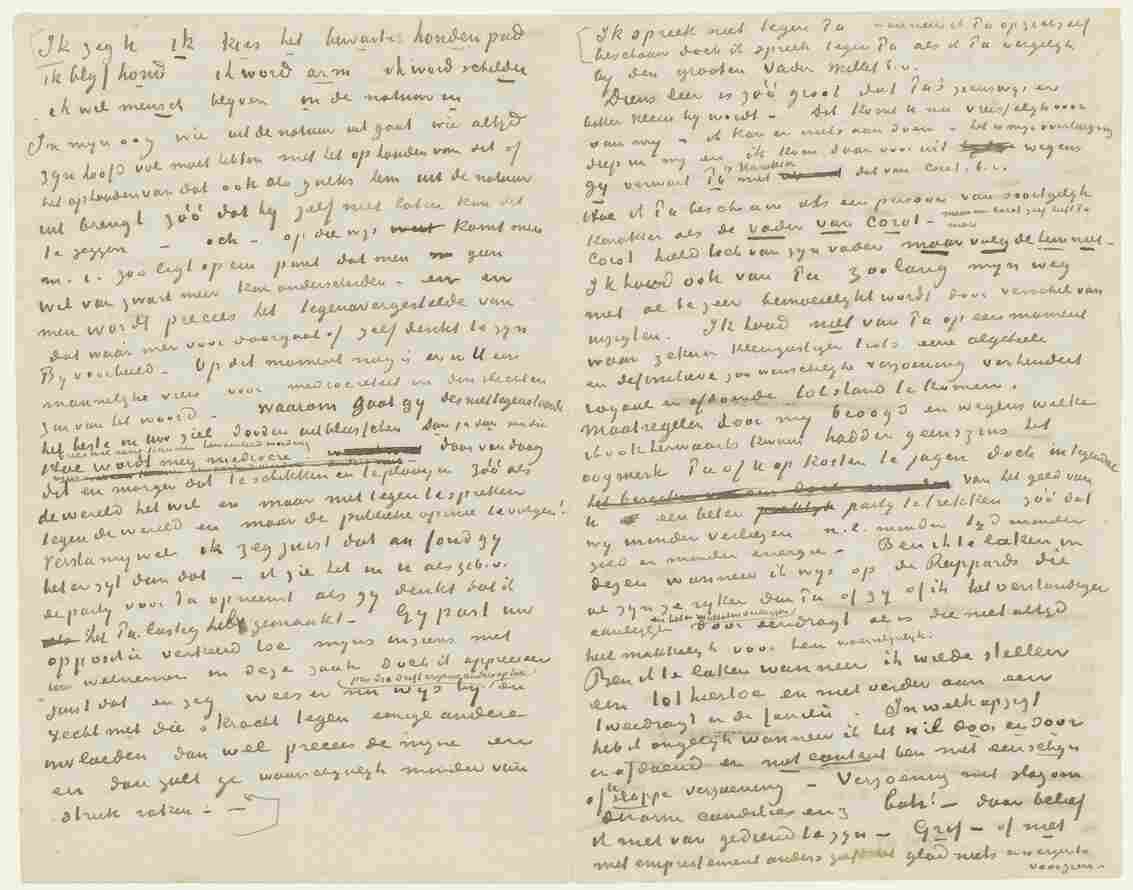 Ik zeg u ik kies het bewuste hondenpad
ik blyf hond ik word arm ik word schilder
ik wil mensch blyven in de natuur en
In myn oog wie uit de natuur uit gaat wie altyd
zyn hoofd vol moet hebben met het ophouden van dit of
het ophouden van dat ook als zulks hem uit de natuur
uit brengt zóó dat hy zelf niet laten kan dit
te zeggen – och – op die wys komt men
m.i. zoo ligt op een punt dat men geen
wit van zwart meer kan onderscheiden – en en
men wordt precies het tegenovergestelde van
dat waar men voor doorgaat of zelf denkt te zyn
By voorbeeld – Op dit moment nog is er in U een
mannelyke vrees voor mediocriteit in den slechten
zin van het woord – waarom gaat gy desniettegenstaande
het beste in uw ziel dooden uitblusschen dan ja dan
Hoe wordt men mediocre door van daag
dit en morgen dat te schikken en te plooijen zóó als
de wereld het wil en maar niet tegen te spreken
tegen de wereld en maar de publieke opinie te volgen!
Versta my wel ik zeg juist dat au fond gy
beter zyt dan dat – ik zie het in u als gy b.v.
de party voor Pa opneemt als gy denkt dat ik
het Pa lastig heb gemaakt – Gy past uw
oppositie verkeerd toe myns inziens met
uw welnemen in deze zaak doch ik apprecieer
juist dat en zeg wees er nu wys by en
vecht met die kracht tegen eenige andere
invloeden dan wel precies de myne en
en dan zult ge waarschynlyk minder van
struk raken. –
Ik spreek niet tegen Pa wanneer ik Pa op zichzelf
beschouw doch ik spreek tegen Pa als ik Pa vergelyk
by den grooten vader Millet b.v.
Diens leer is zóó groot dat Pa's zienswys er
bitter klein by wordt – Dit komt u nu vreesselyk voor
van my – ik kan er niets aan doen – het is myn overtuiging
diep in my en ik kom daar voor uit wegens
gy verwart Pa's karakter met dat van Corot, b.v.
Hoe ik Pa beschouw als een persoon van soortgelyk
karakter als de vader van Corot –
Corot hield toch van zyn vader maar volgde hem niet. –
Ik houd ook van Pa zoolang myn weg
niet al te zeer bemoeielykt wordt door verschil van
inzigten. Ik houd niet van Pa op een moment
waar zekere kleingeestiger trots eene algeheele
en definitieve zoo wenschelyke verzoening verhindert
royaal en afdoende tot stand te komen.
Maatregelen door my beoogd en wegens welke
ik ook herwaarts kwam hadden geenszins het
oogmerk Pa of U op kosten te jagen doch integendeel
van het geld van
U een beter party te trekken zóó dat
wy minder verliezen n.l. minder tyd minder
geld en minder energie – Ben ik te laken in
dezen wanneer ik wys op de Rappards die
al zyn ze ryker dan Pa of gy of ik het verstandiger
aanleggen door eendragt al is die niet altyd
heel makkelyk voor hen waarschynlyk.
Ben ik te laken wanneer ik wilde stellen
een tot hiertoe en niet verder aan een
tweedragt in de familie. In welk opzigt
heb ik ongelyk wanneer ik het wil door en door
en afdoend en niet content ben met een schyn
of te slappe verzoening – Verzoening met slag om
d'n arm condities enz bah! – daar belief
ik niet van gediend te zyn – Grif – of niet
met empressement anders glad niets en erger te
voorzien. –